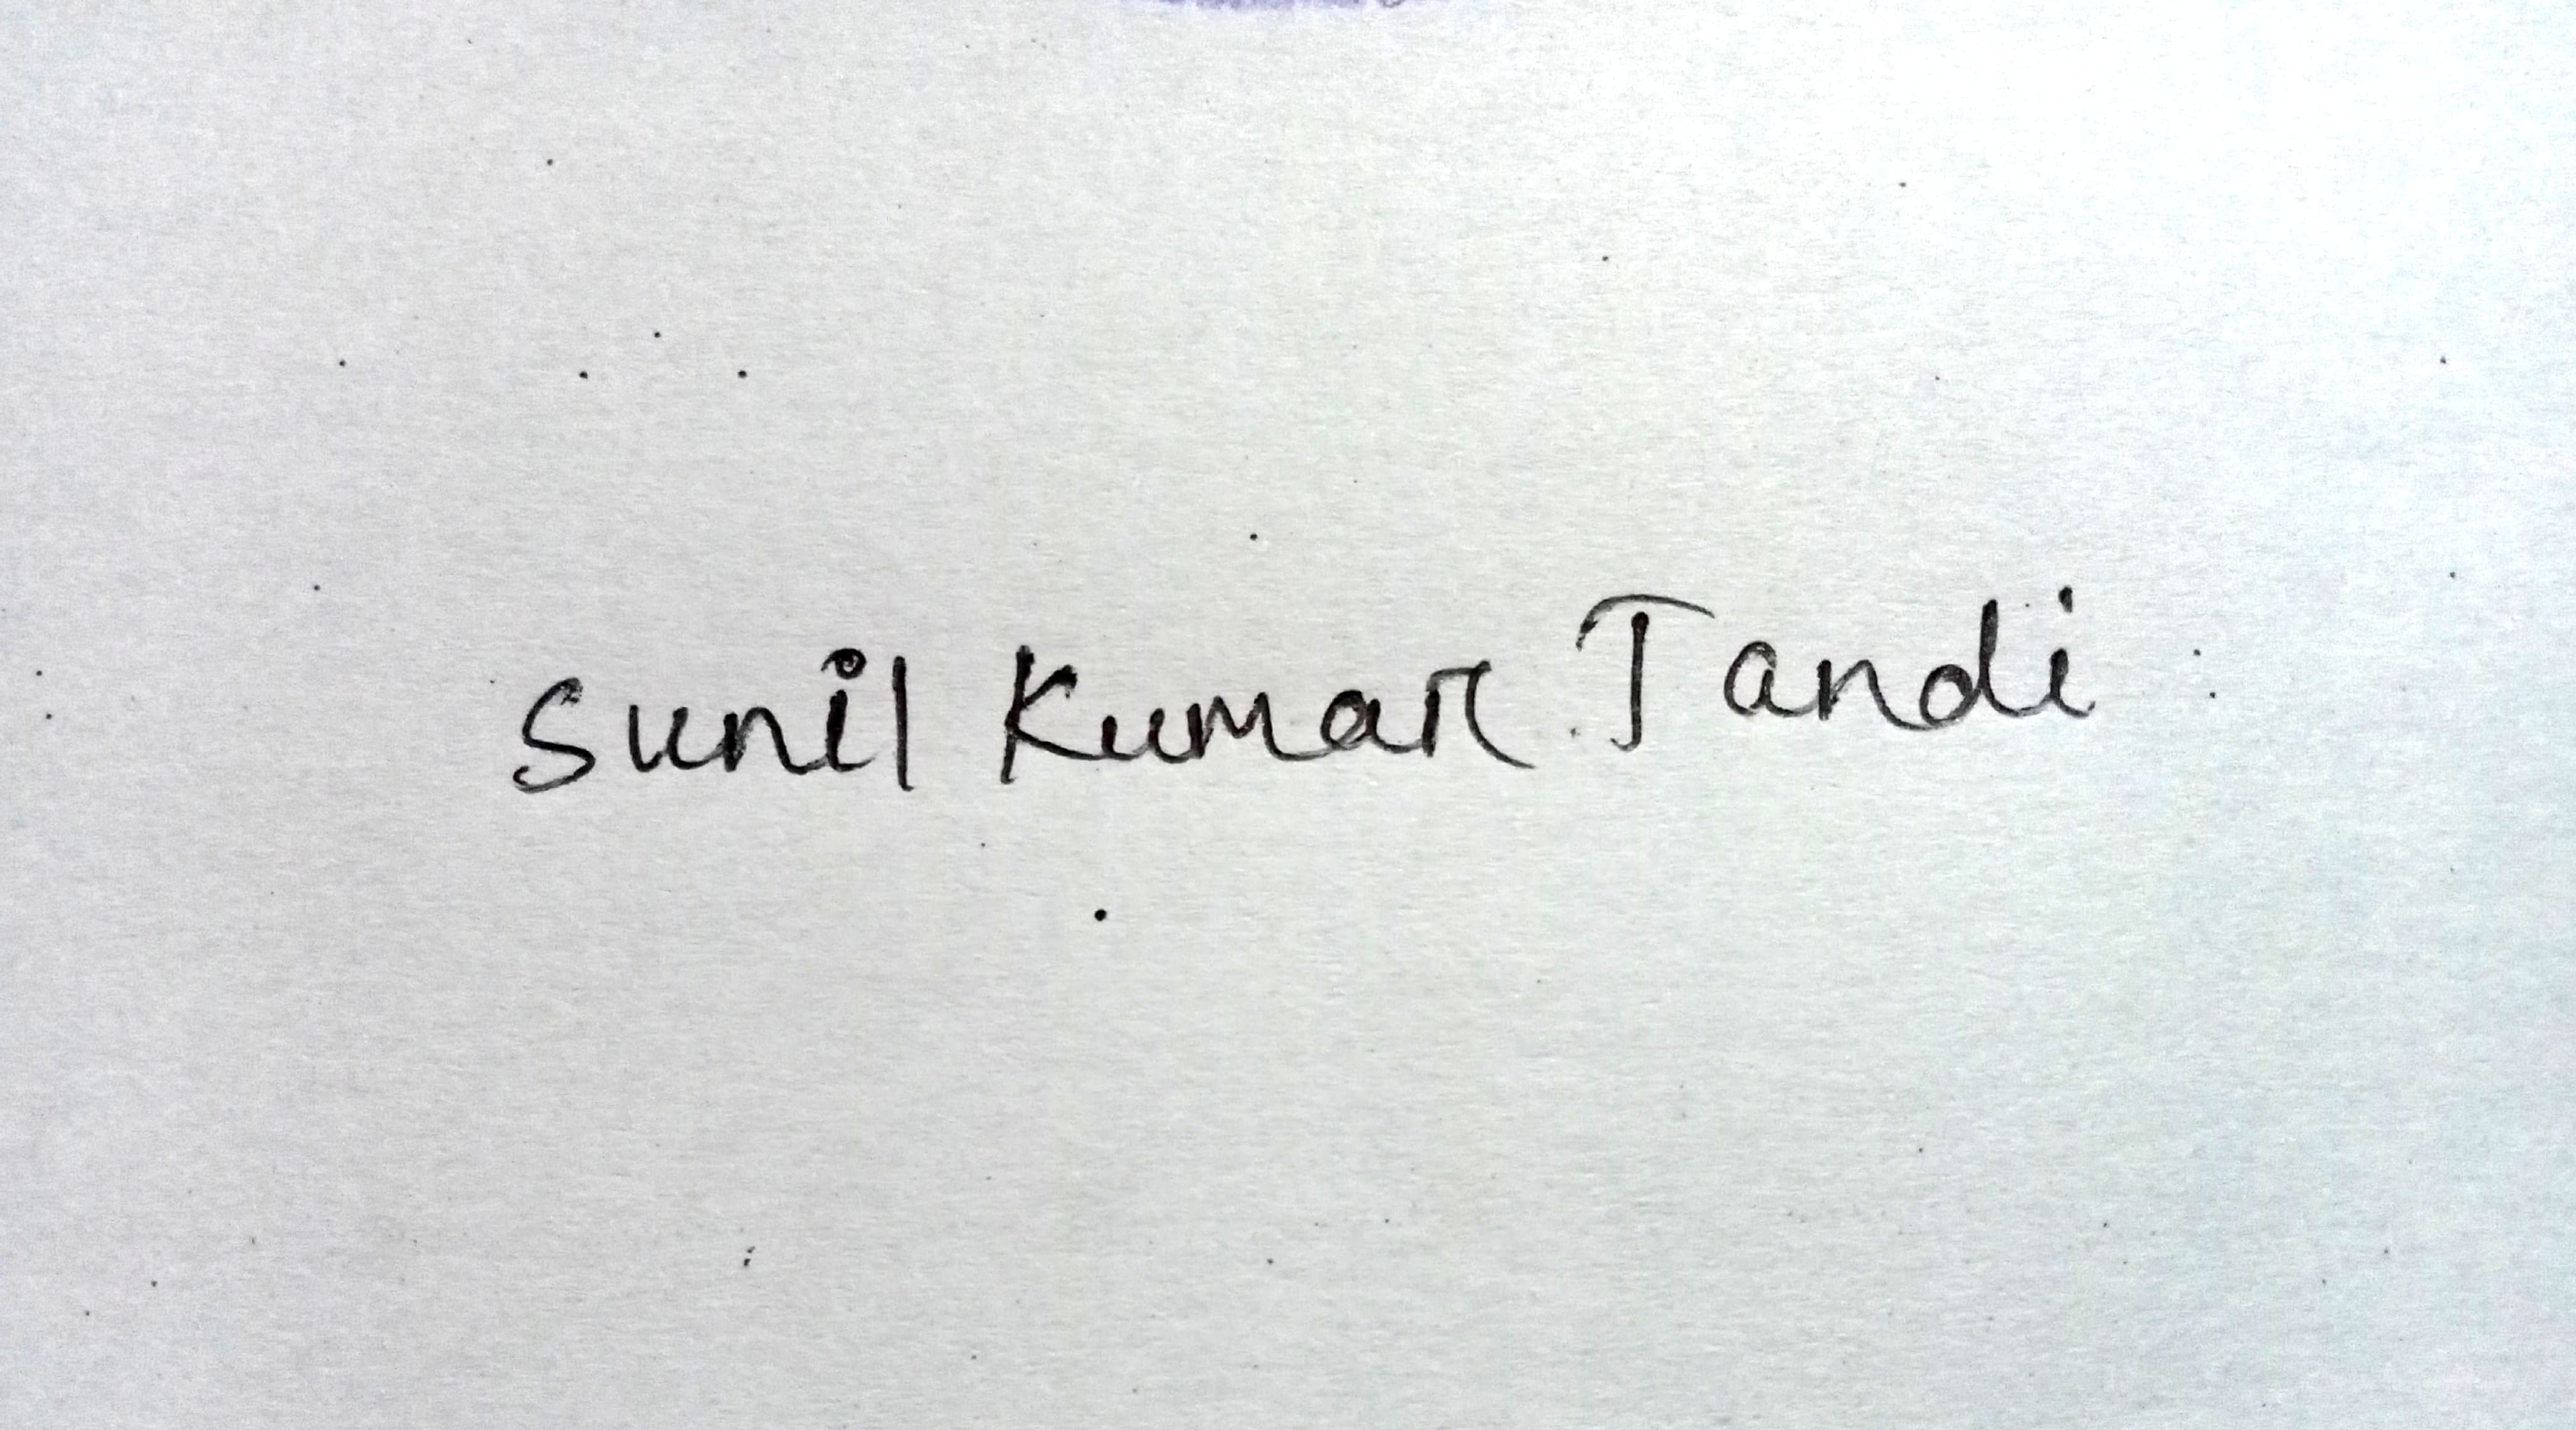 Sunil Kumar Tandi